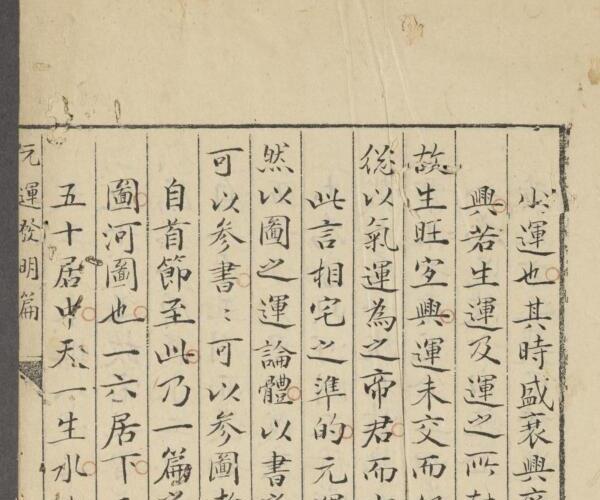 小運也其時盛衰興
興若生運及運之所
故生旺宜興運未交而
從以氣運為之帝君而
此言相宅之準的元
然以圖之運論體以書
可以參書〻可以參圖
自首節至此乃一篇
圖河圖也一六居下
五十居中天一生水
元運發明篇